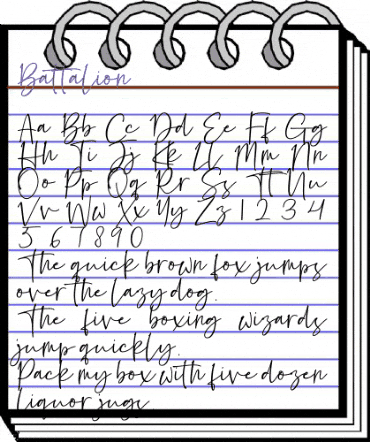 Battalion
Aa Bb Cc Dd Ee Ff Gg
Hh Ii Jj Kk Ll Mm Nn
Oo Pp Qq Rr Ss Tt Uu
Vv Ww Xx Yy Zz 1 2 3 4
5 6 7 8 9 0
The quick brown fox jumps
over the lazy dog.
The five boxing wizards
jump quickly.
Pack my box with five dozen
liquor jugs